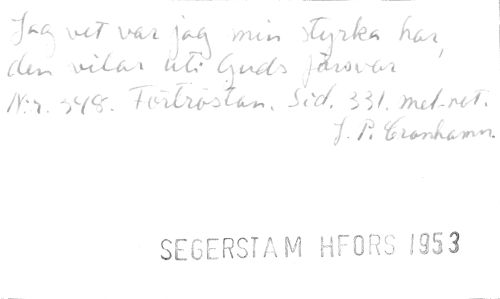 Jag vet var jag min styrka har,
den vilar uti Guds försvar
N:r. 348. Förtröstan. Sid. 331. met-ret.
J. P. Cronhamn.
SEGERSTAM HFORS 1953